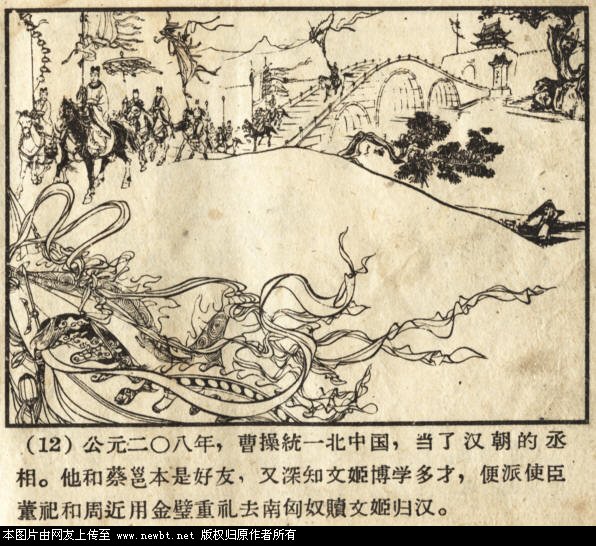 (12) 公元二〇八年，曹操統一北中国，当了汉朝的丞
相。他和蔡邕本是好友，又深知文姬博学多才，便派使臣
董祀和周近用金璧重礼去南匈奴贖文姬归汉。
本图片由网友上传至 www.newbt.net 版权归原作者所有